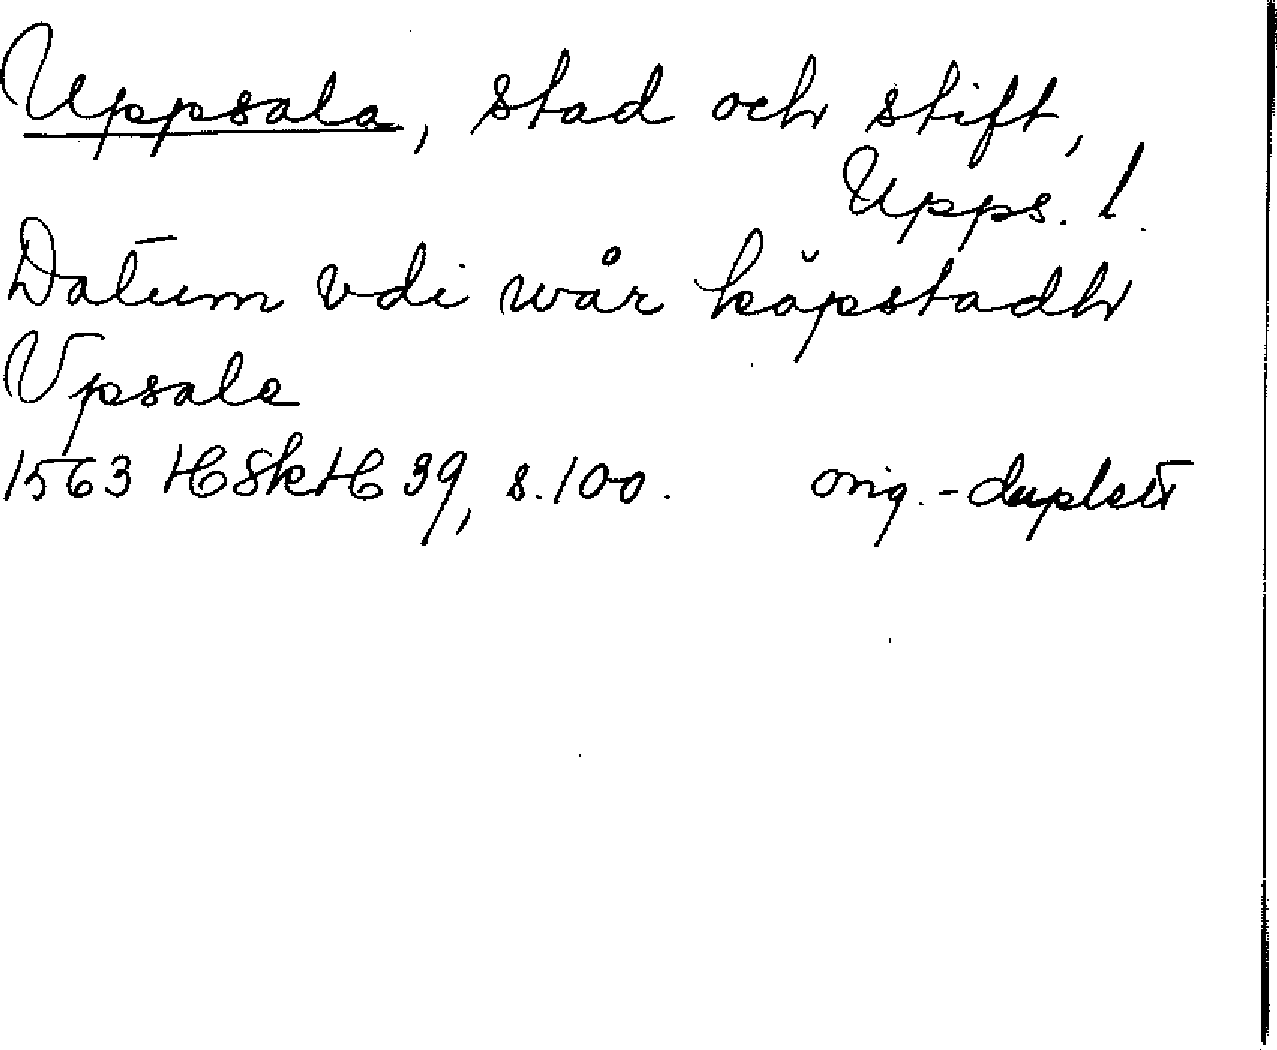 Uppsala, stad och stift,
Upps. l.
Datum vdi wår köpstadh
Vpsala
1563 HSkH 39, s. 100. orig.-duplett